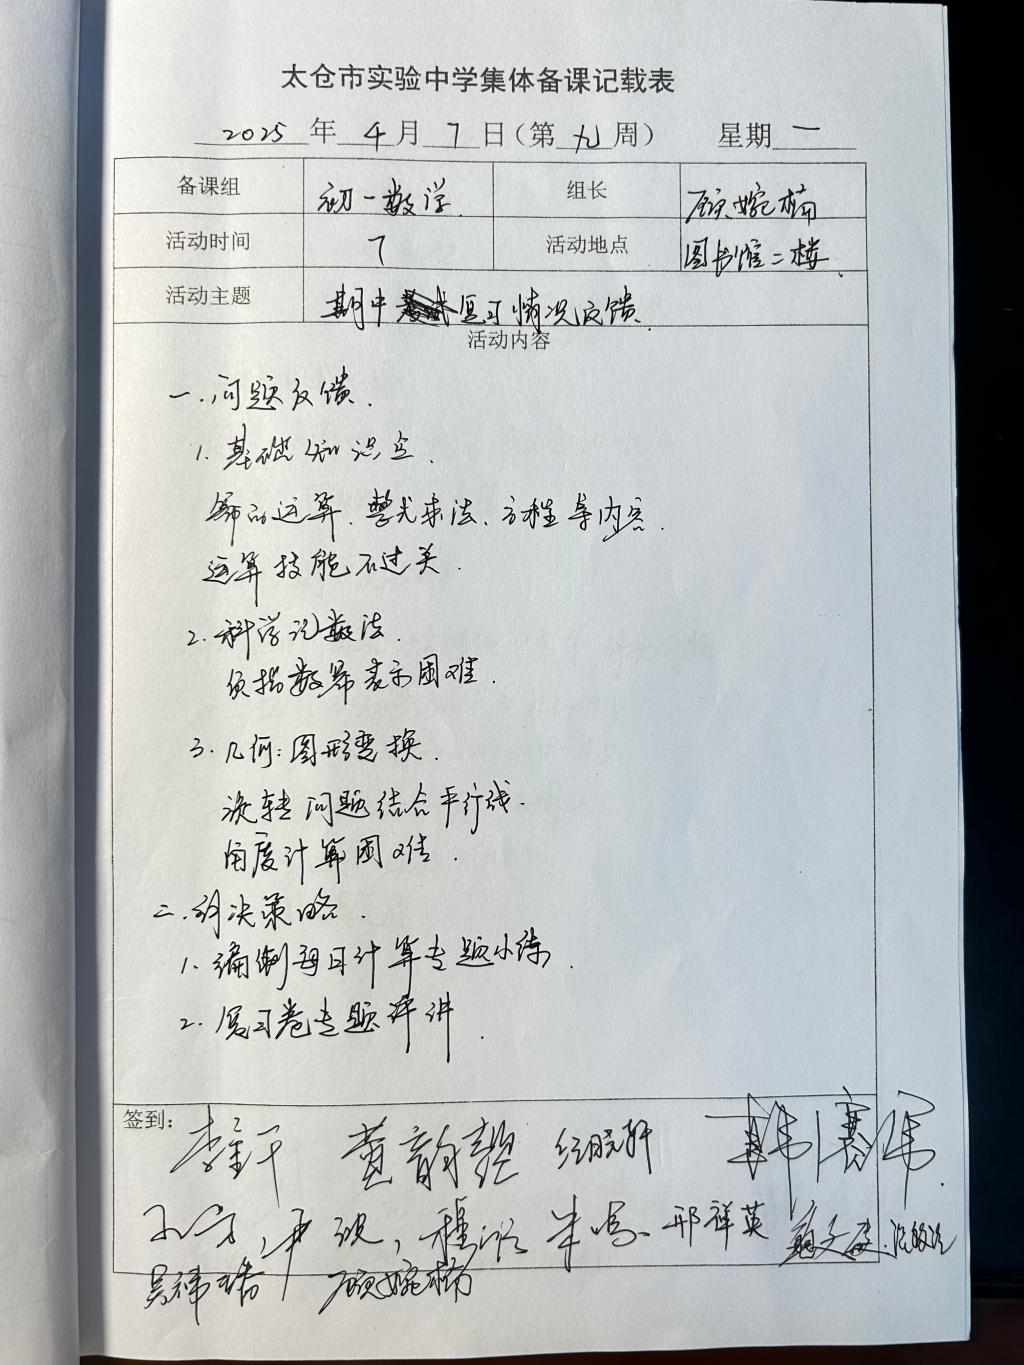 太仓市实验中学集体备课记载表
2025 年 4 月 7 日（第 九 周） 星期 一
备课组 初一数学 组长 顾婉楠
活动时间 7 活动地点 图书馆二楼
活动主题 期中复习情况反馈
活动内容
一. 问题反馈.
1. 基础知识点.
幂的运算、整式乘法、方程等内容.
运算技能不过关.
2. 科学记数法.
负指数幂表示困难.
3. 几何: 图形变换.
旋转问题结合平行线.
角度计算困难.
二. 解决策略.
1. 编制每日计算专题小练.
2. 复习卷专题评讲.
签到:
韩赛伟
邢祥英
顾婉楠